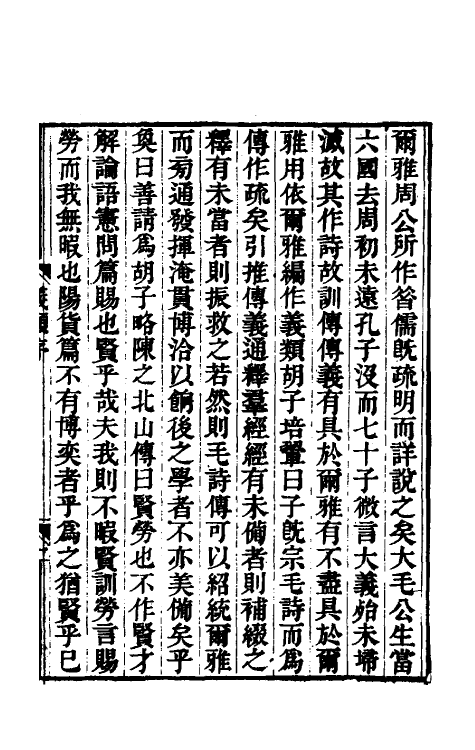 爾雅周公所作昝儒旣疏明而詳說之矣大毛公生當
六國去周初未遠孔子沒而七十子微言大義殆未埽
滅故其作詩故訓傳傳義有具於爾雅有不盡具於爾
雅用依爾雅編作義類胡子培翬曰子旣宗毛詩而爲
傳作疏矣引推傳義通釋羣經經有未備者則補綴之
釋有未當者則振救之若然則毛詩傳可以紹統爾雅
而㫄通發揮淹貫博洽以餉後之學者不亦美備矣乎
奐曰善請爲胡子略陳之北山傳曰賢勞也不作賢才
解論語憲問篇賜也賢乎哉夫我則不暇賢訓勞言賜
勞而我無暇也陽貨篇不有博奕者乎爲之猶賢乎已
義類序